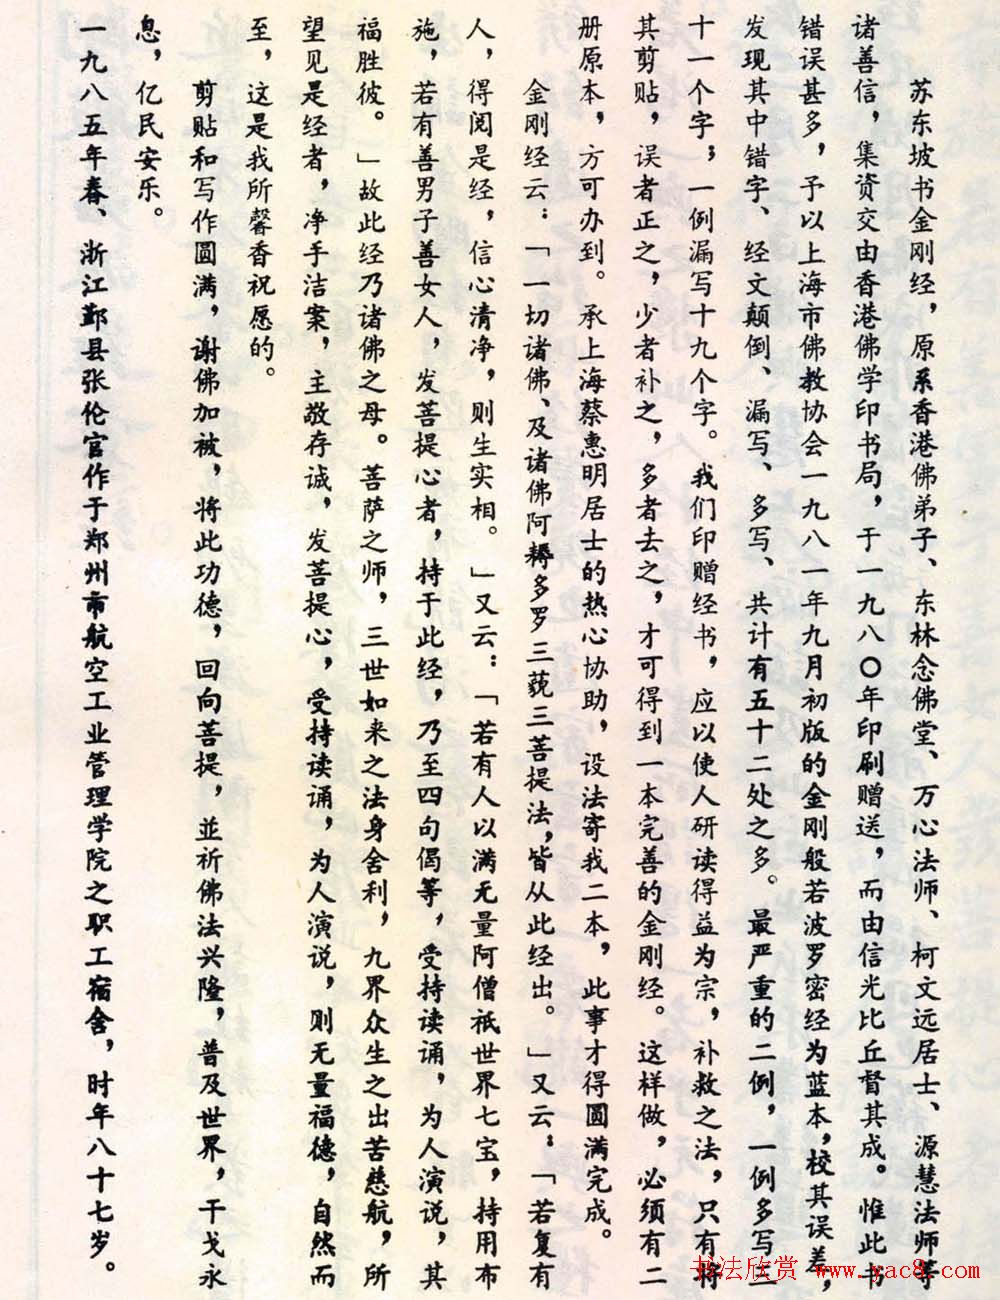 苏东坡书金刚经，原系香港佛弟子、东林念佛堂、万心法师、柯文远居士、源慧法师等
诸善信，集资交由香港佛学印书局，于一九八〇年印刷赠送，而由信光比丘督其成。惟此书
错误甚多，予以上海市佛教协会一九八一年九月初版的金刚般若波罗密经为蓝本，校其误差，
发现其中错字、经文颠倒、漏写、多写、共计有五十二处之多。最严重的二例，一例多写三
十一个字；一例漏写十九个字。我们印赠经书，应以使人研读得益为宗，补救之法，只有将
其剪贴，误者正之，少者补之，多者去之，才可得到一本完善的金刚经。这样做，必须有二
册原本，方可办到。承上海蔡惠明居士的热心协助，设法寄我二本，此事才得圆满完成。
金刚经云：「一切诸佛、及诸佛阿耨多罗三藐三菩提法，皆从此经出。」又云：「若复有
人，得阅是经，信心清净，则生实相。」又云：「若有人以满无量阿僧祇世界七宝，持用布
施，若有善男子善女人，发菩提心者，持于此经，乃至四句偈等，受持读诵，为人演说，其
福胜彼。」故此经乃诸佛之母。菩萨之师，三世如来之法身舍利，九界众生之出苦慈航，所
望见是经者，净手洁案，主敬存诚，发菩提心，受持读诵，为人演说，则无量福德，自然而
至，这是我所馨香祝愿的。
剪贴和写作圆满，谢佛加被，将此功德，回向菩提，並祈佛法兴隆，普及世界，干戈永
息，亿民安乐。
一九八五年春、浙江鄞县张伦官作于郑州市航空工业管理学院之职工宿舍，时年八十七岁。
书法欣赏 www.yac8.com